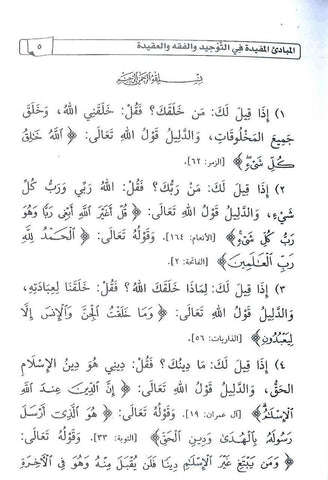 المبادئ المفيدة في التَّوْحِيد والفقه والعقيدة ٥
بِسْمِ اللَّهِ الرَّحْمَنِ الرَّحِيمِ
١) إِذَا قِيلَ لَكَ: مَن خَلَقَكَ؟ فَقُلْ: خَلَقَنِي اللهُ، وَخَلَقَ
جَمِيعَ المَخْلُوقَاتِ، وَالدَّلِيلُ قَوْلُ اللهِ تَعَالَى: ﴿اللَّهُ خَلِقُ
كُلِّ شَيْءٍ﴾ [الزمر: ٦٢].
٢) إِذَا قِيلَ لَكَ: مَن رَبُّكَ؟ فَقُلْ: اللهُ رَبِّي وَرَبُّ كُلِّ
شَيْءٍ، وَالدَّلِيلُ قَوْلُ اللهِ تَعَالَى: ﴿قُلْ أَغَيْرَ اللَّهِ أَبْغِي رَبًّا وَهُوَ
رَبُّ كُلِّ شَيْءٍ﴾ [الأنعام: ١٦٤]. وَقَوْلُهُ تَعَالَى: ﴿الْحَمْدُ لِلَّهِ
رَبِّ الْعَالَمِينَ﴾ [الفاتحة: ٢].
٣) إِذَا قِيلَ لَكَ: لِمَاذَا خَلَقَكَ اللهُ؟ فَقُلْ: خَلَقَنَا لِعِبَادَتِهِ،
وَالدَّلِيلُ قَوْلُ اللهِ تَعَالَى: ﴿وَمَا خَلَقْتُ الْجِنَّ وَالْإِنسَ إِلَّا
لِيَعْبُدُونِ﴾ [الذاريات: ٥٦].
٤) إِذَا قِيلَ لَكَ: مَا دِينُكَ؟ فَقُلْ: دِينِي هُوَ دِينُ الإِسْلَامِ
الحَقُّ، وَالدَّلِيلُ قَوْلُ اللهِ تَعَالَى: ﴿إِنَّ الدِّينَ عِندَ اللَّهِ
الْإِسْلَامُ﴾ [آل عمران: ١٩]. وَقَوْلُهُ تَعَالَى: ﴿هُوَ الَّذِي أَرْسَلَ
رَسُولَهُ بِالْهُدَى وَدِينِ الْحَقِّ﴾ [التوبة: ٣٣]. وَقَوْلُهُ تَعَالَى:
﴿وَمَن يَبْتَغِ غَيْرَ الْإِسْلَامِ دِينًا فَلَن يُقْبَلَ مِنْهُ وَهُوَ فِي الْآخِرَةِ